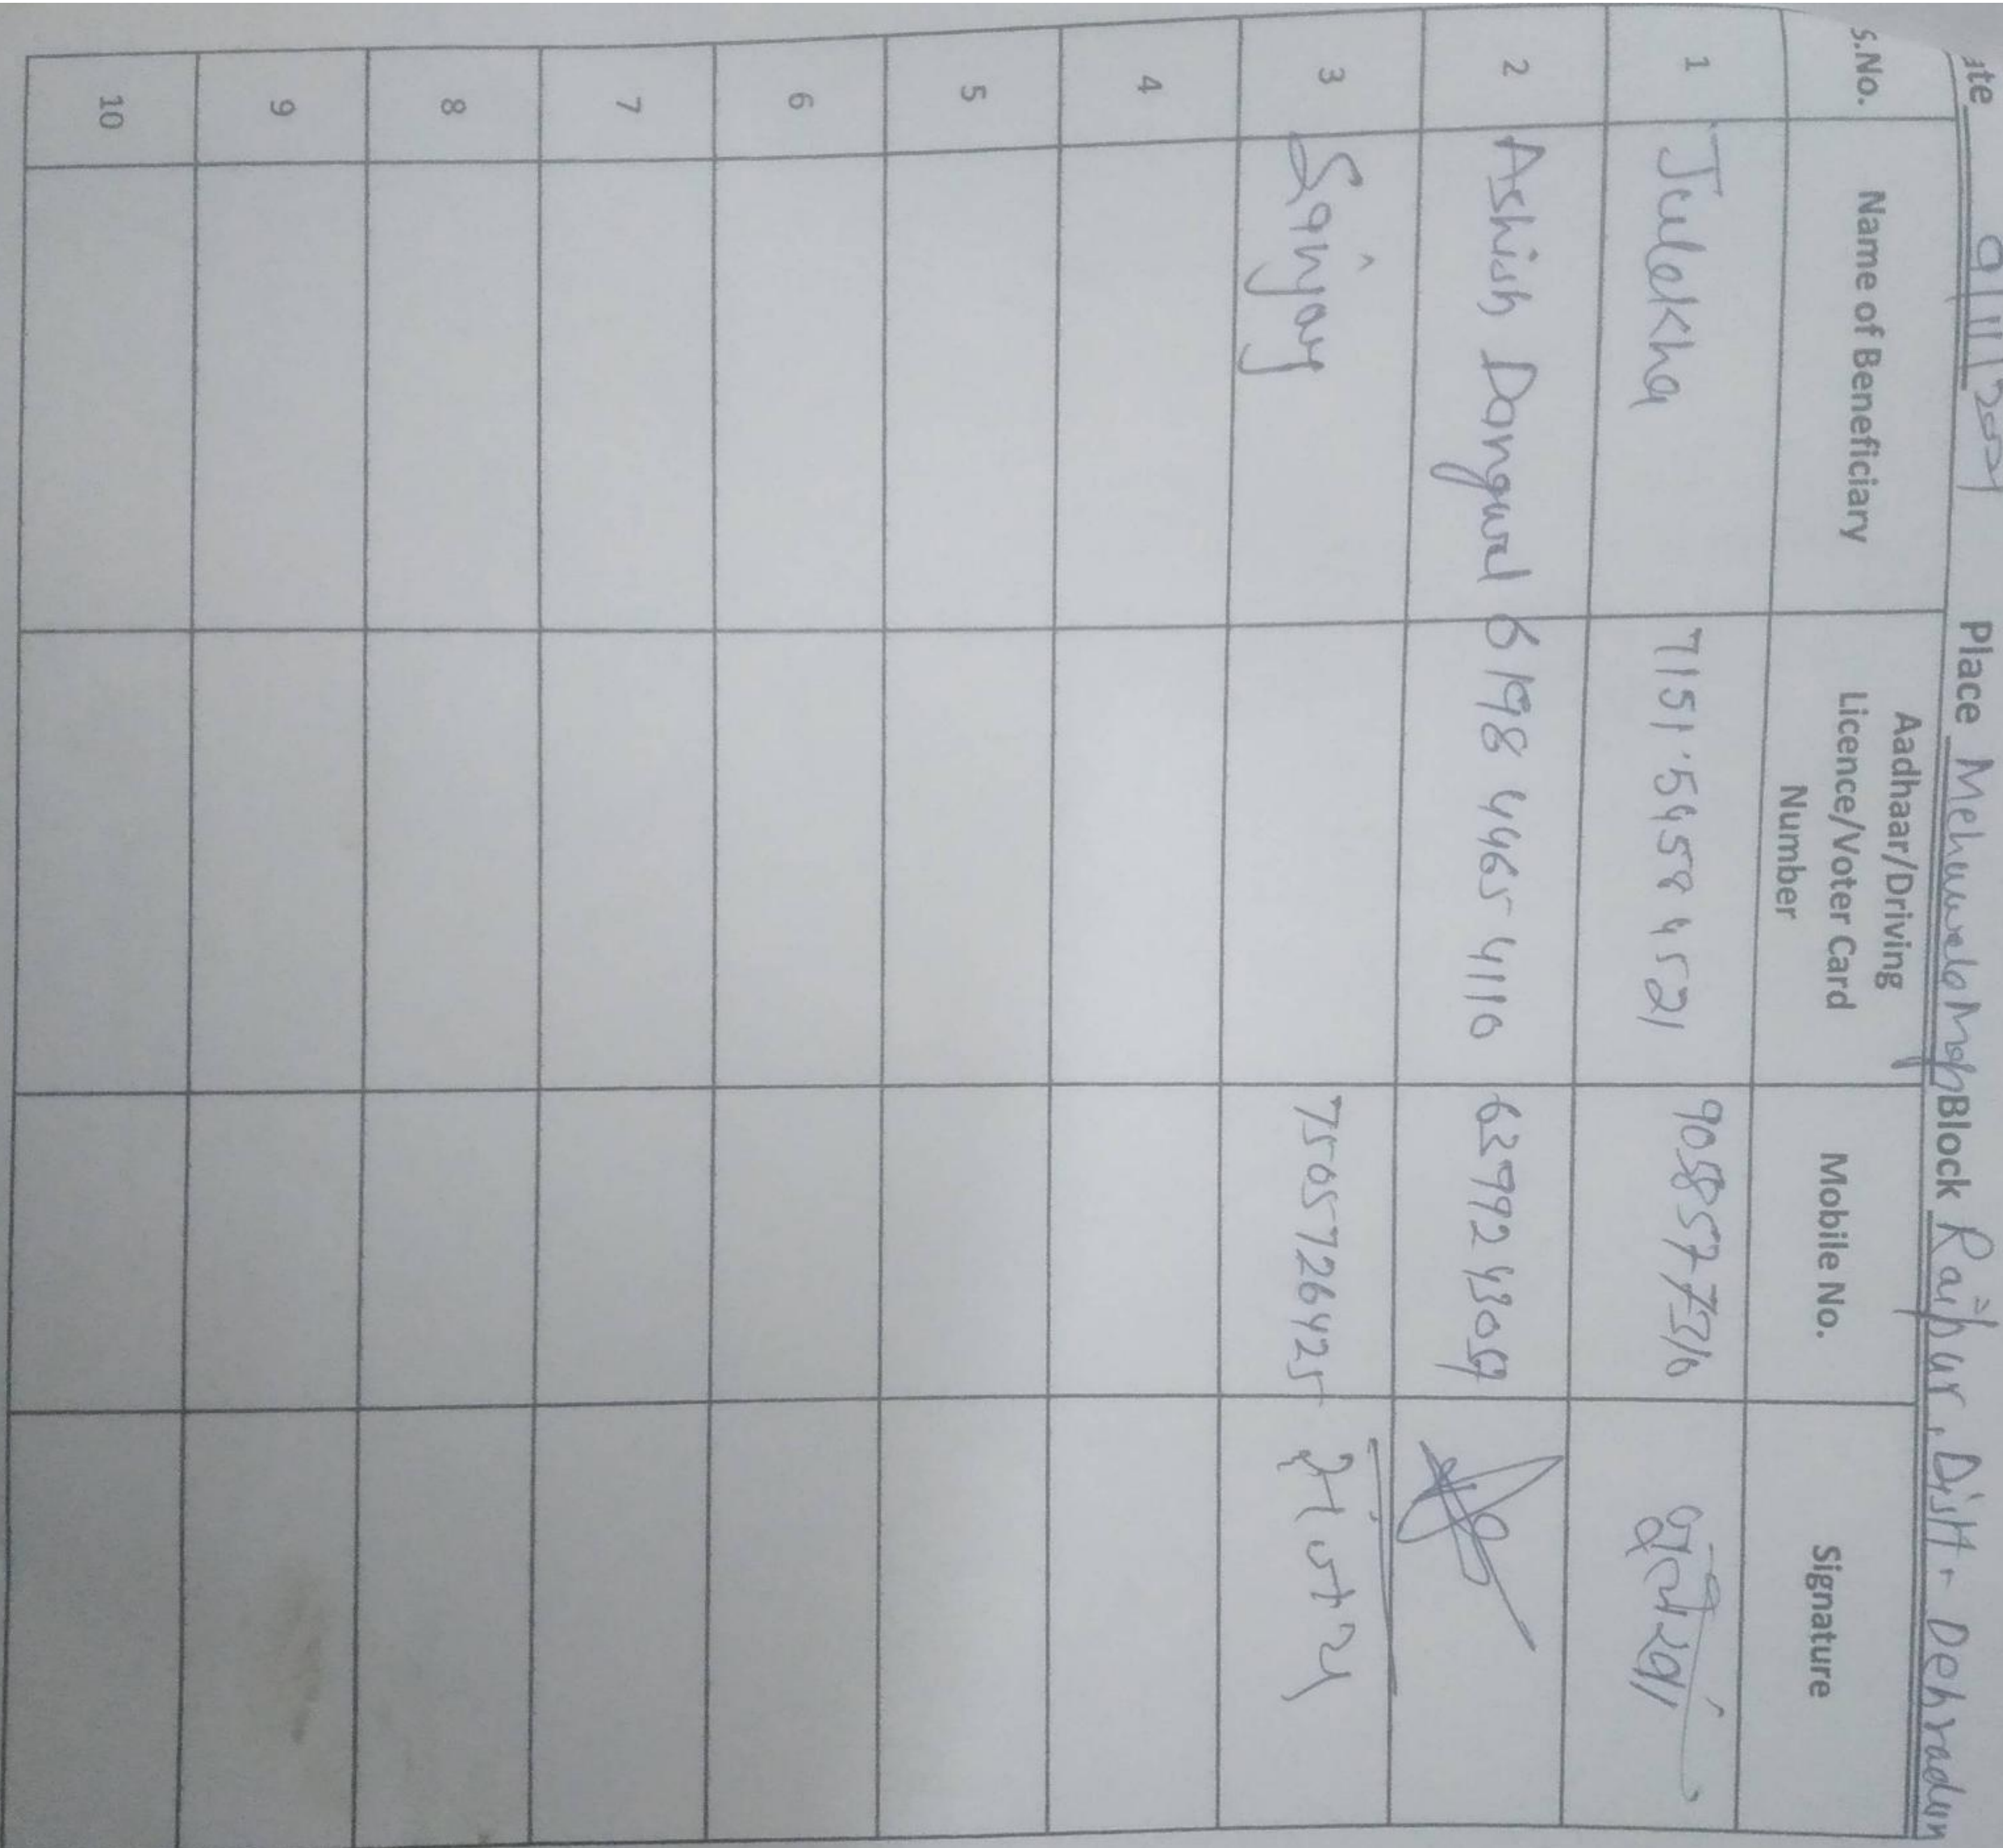 ate 9/11/2021 Place Mehuwala Mafi Block Raipur, Distt- Dehradun
S.No. Name of Beneficiary Aadhaar/Driving Licence/Voter Card Number Mobile No. Signature
1 Julekha 7151 5458 4521 9058577316 जुलेखा
2 Ashish Dangwal 6198 4465 4110
3 Sanjay 7505726425 संजय
4
5
6
7
8
9
10